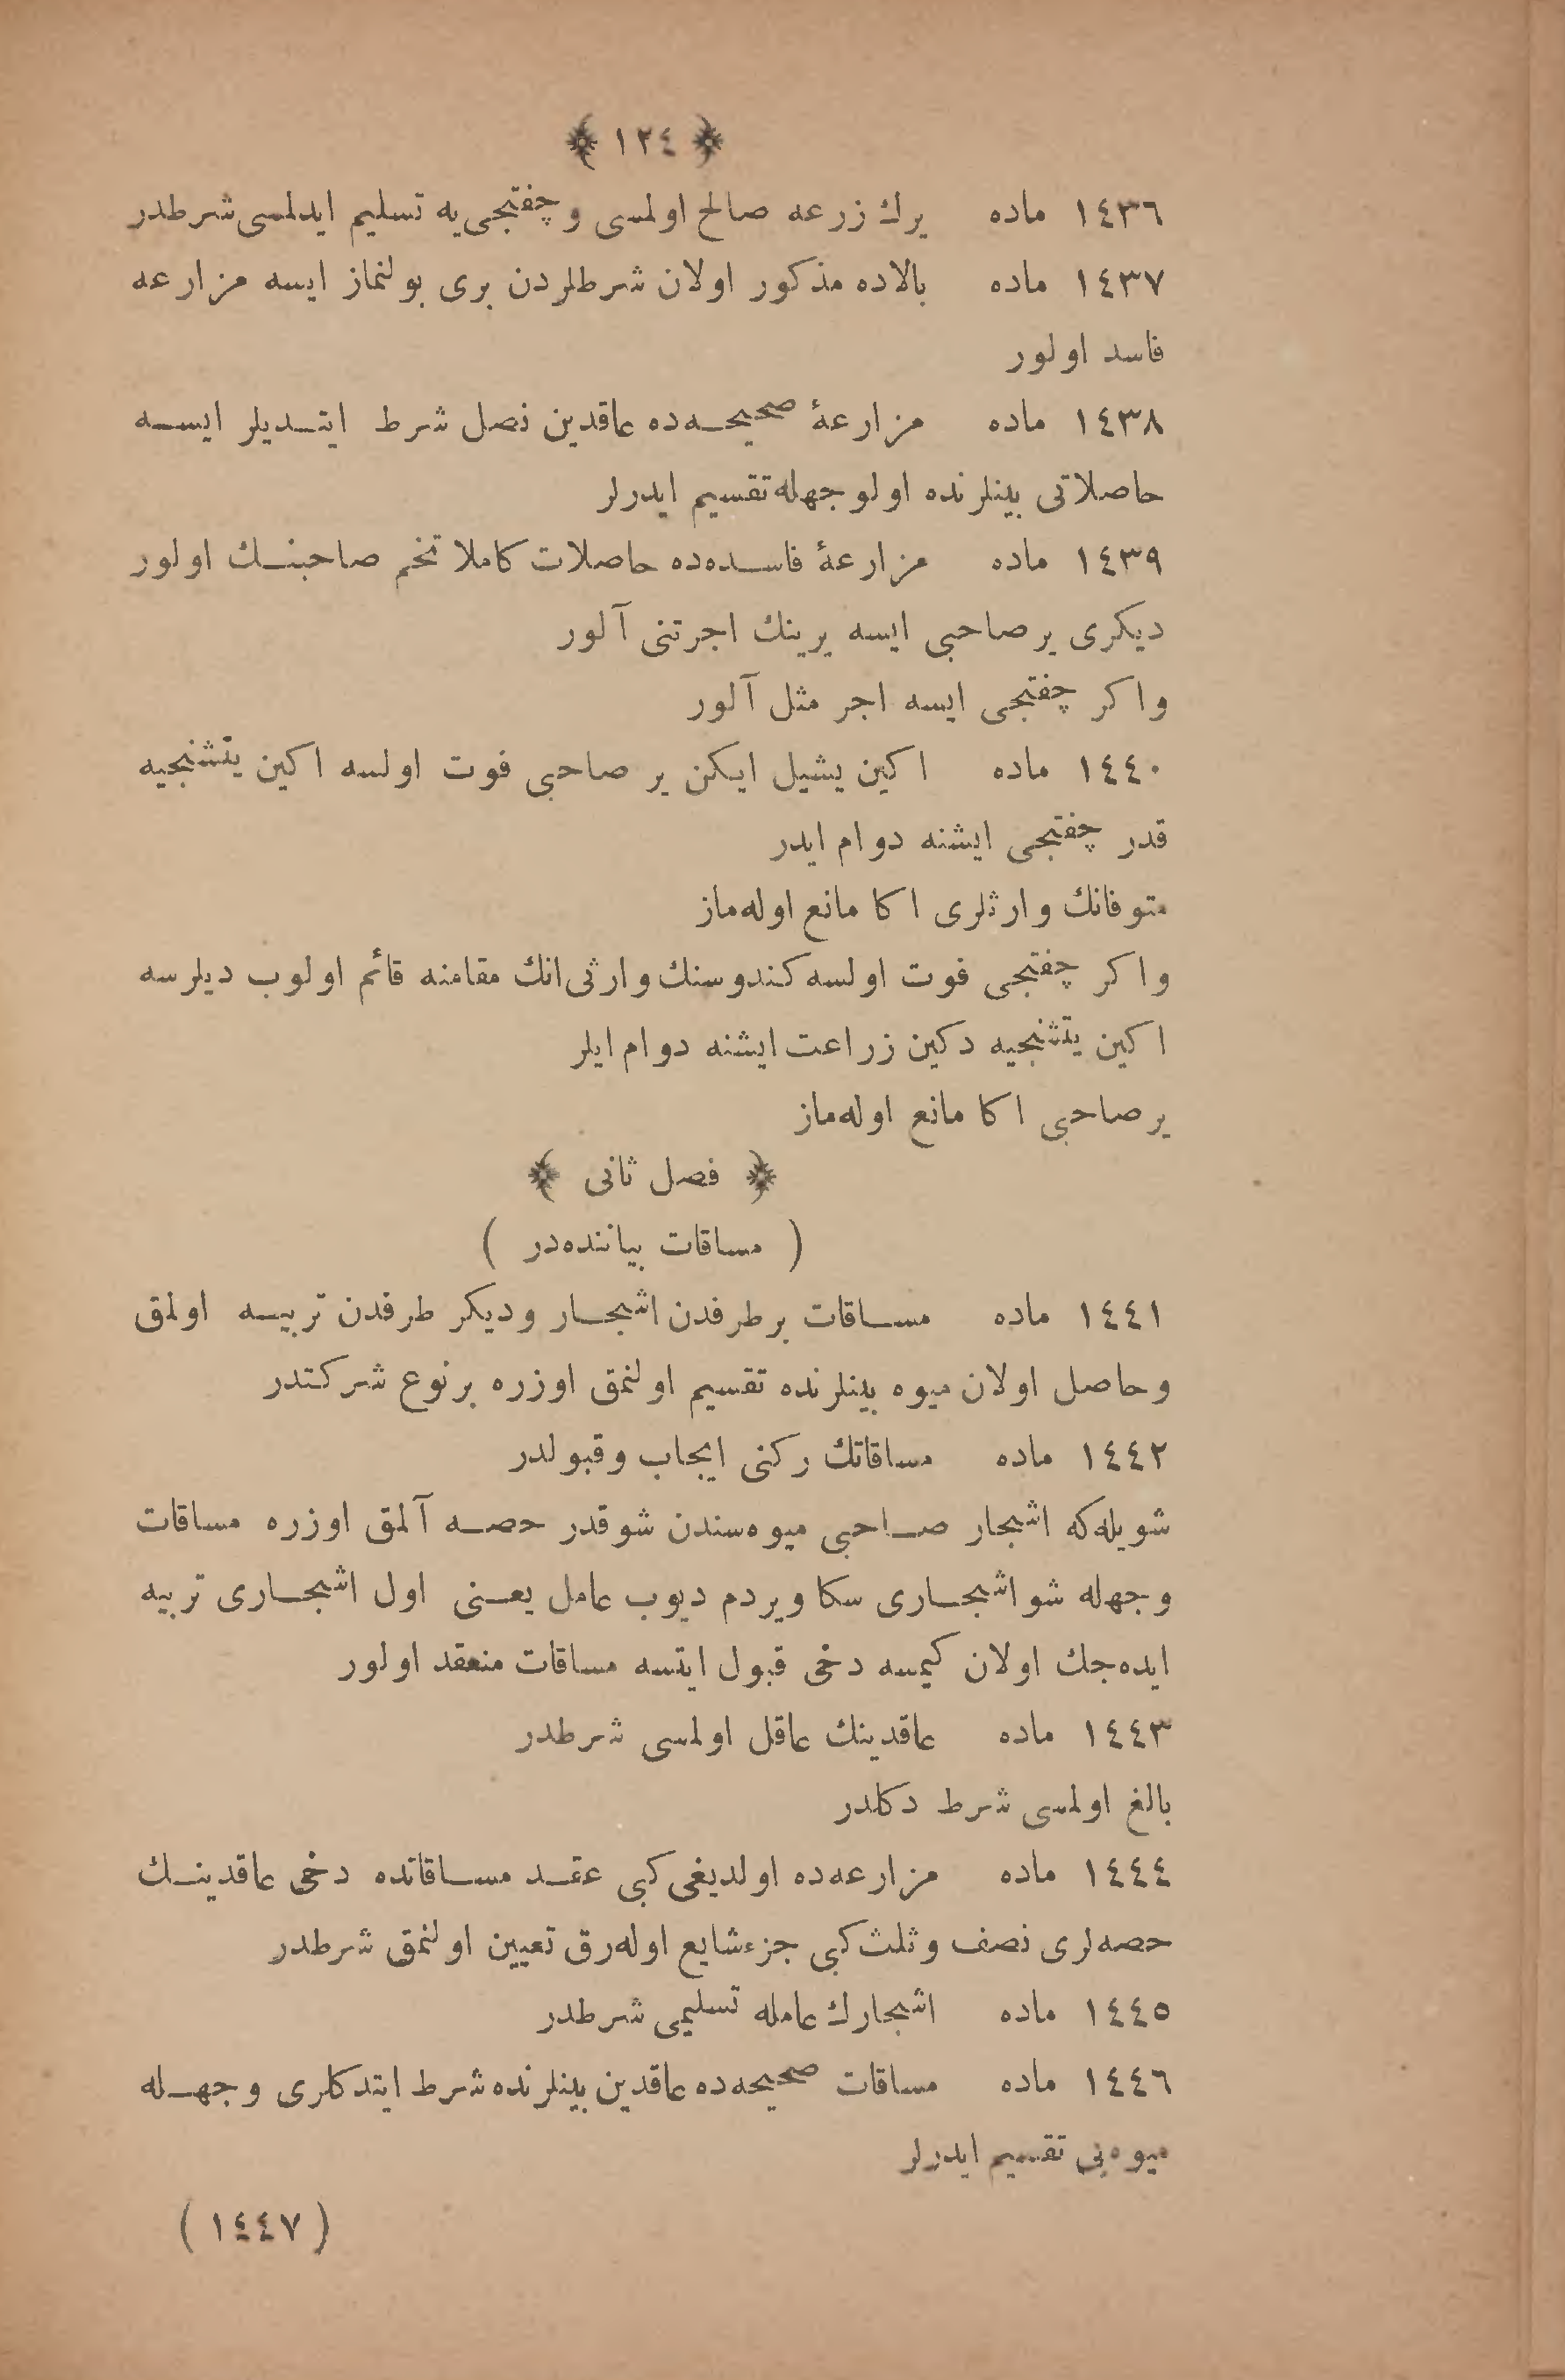 ﴿ ١٢٤ ﴾
١٤٣٦ ماده يرك زرعه صالح اولمسى وچفتجى‌يه تسليم ايدلمسى شرطدر
١٤٣٧ ماده بالاده مذكور اولان شرطلردن برى بولنماز ايسه مزارعه
فاسد اولور
١٤٣٨ ماده مزارعهٔ صحيحه‌ده عاقدين نصل شرط ايتديلر ايسه
حاصلاتى بينلرنده اولوجهله تقسيم ايدرلر
١٤٣٩ ماده مزارعهٔ فاسده‌ده حاصلات كاملا تخم صاحبنك اولور
ديكرى ير صاحبى ايسه يرينك اجرتنى آلور
واكر چفتجى ايسه اجر مثل آلور
١٤٤٠ ماده اكين يشيل ايكن ير صاحبى فوت اولسه اكين يتشنجيه
قدر چفتجى ايشنه دوام ايدر
متوفانك وارثلرى اكا مانع اوله‌ماز
واكر چفتجى فوت اولسه كندوسنك وارثى انك مقامنه قائم اولوب ديلرسه
اكين يتشنجيه دكين زراعت ايشنه دوام ايلر
ير صاحبى اكا مانع اوله‌ماز
﴿ فصل ثانى ﴾
( مساقات بياننده‌در )
١٤٤١ ماده مساقات برطرفدن اشجار وديكر طرفدن تربيه اولمق
وحاصل اولان ميوه بينلرنده تقسيم اولنمق اوزره برنوع شركتدر
١٤٤٢ ماده مساقاتك ركنى ايجاب وقبولدر
شويله‌كه اشجار صاحبى ميوه‌سندن شوقدر حصه آلمق اوزره مساقات
وجهله شو اشجارى سكا ويردم ديوب عامل يعنى اول اشجارى تربيه
ايده‌جك اولان كيمسه دخى قبول ايتسه مساقات منعقد اولور
١٤٤٣ ماده عاقدينك عاقل اولمسى شرطدر
بالغ اولمسى شرط دكلدر
١٤٤٤ ماده مزارعه‌ده اولديغى كبى عقد مساقاتده دخى عاقدينك
حصه‌لرى نصف وثلث كبى جزءشايع اوله‌رق تعيين اولنمق شرطدر
١٤٤٥ ماده اشجارك عامله تسليمى شرطدر
١٤٤٦ ماده مساقات صحيحه‌ده عاقدين بينلرنده شرط ايتدكلرى وجهله
ميوه‌يى تقسيم ايدرلر
( ١٤٤٧ )